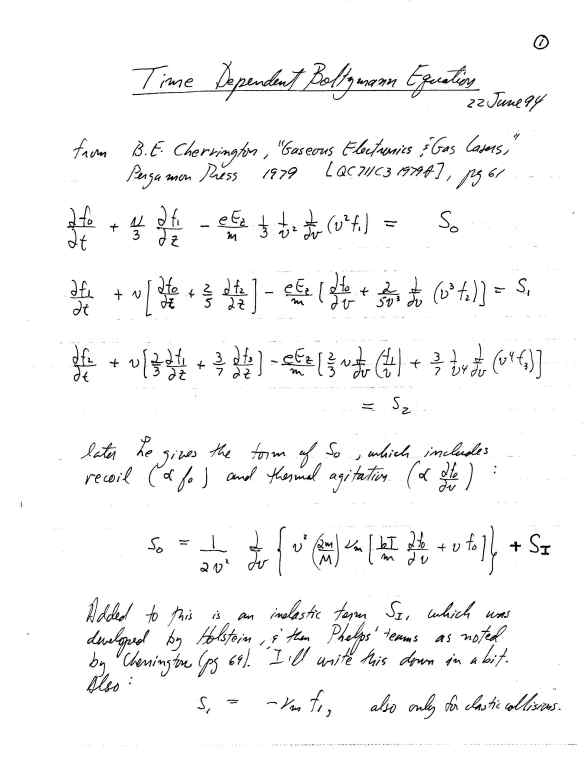 ①
Time Dependent Boltzmann Equation
22 June 94
from B.E. Cherrington, "Gaseous Electronics & Gas Lasers,"
Pergamon Press 1979 [QC711C3 1979A], pg 61
∂f₀/∂t + v/3 ∂f₁/∂z − eE_z/m 1/3 1/v² ∂/∂v (v²f₁) = S₀
∂f₁/∂t + v[∂f₀/∂z + 2/5 ∂f₂/∂z] − eE_z/m [∂f₀/∂v + 2/5v³ ∂/∂v (v³f₂)] = S₁
∂f₂/∂t + v[2/3 ∂f₁/∂z + 3/7 ∂f₃/∂z] − eE_z/m [2/3 v ∂/∂v (f₁/v) + 3/7 1/v⁴ ∂/∂v (v⁴f₃)]
= S₂
later he gives the form of S₀, which includes
recoil (∝ f₀) and thermal agitation (∝ ∂f₀/∂v) :
S₀ = 1/2v² ∂/∂v { v² (2m/M) ν_m [kT/m ∂f₀/∂v + v f₀] } + S_I
Added to this is an inelastic term S_I, which was
developed by Holstein, & then Phelps' teams as noted
by Cherrington (pg 69). I'll write this down in a bit.
Also:
S₁ = −ν_m f₁, also only for elastic collisions.